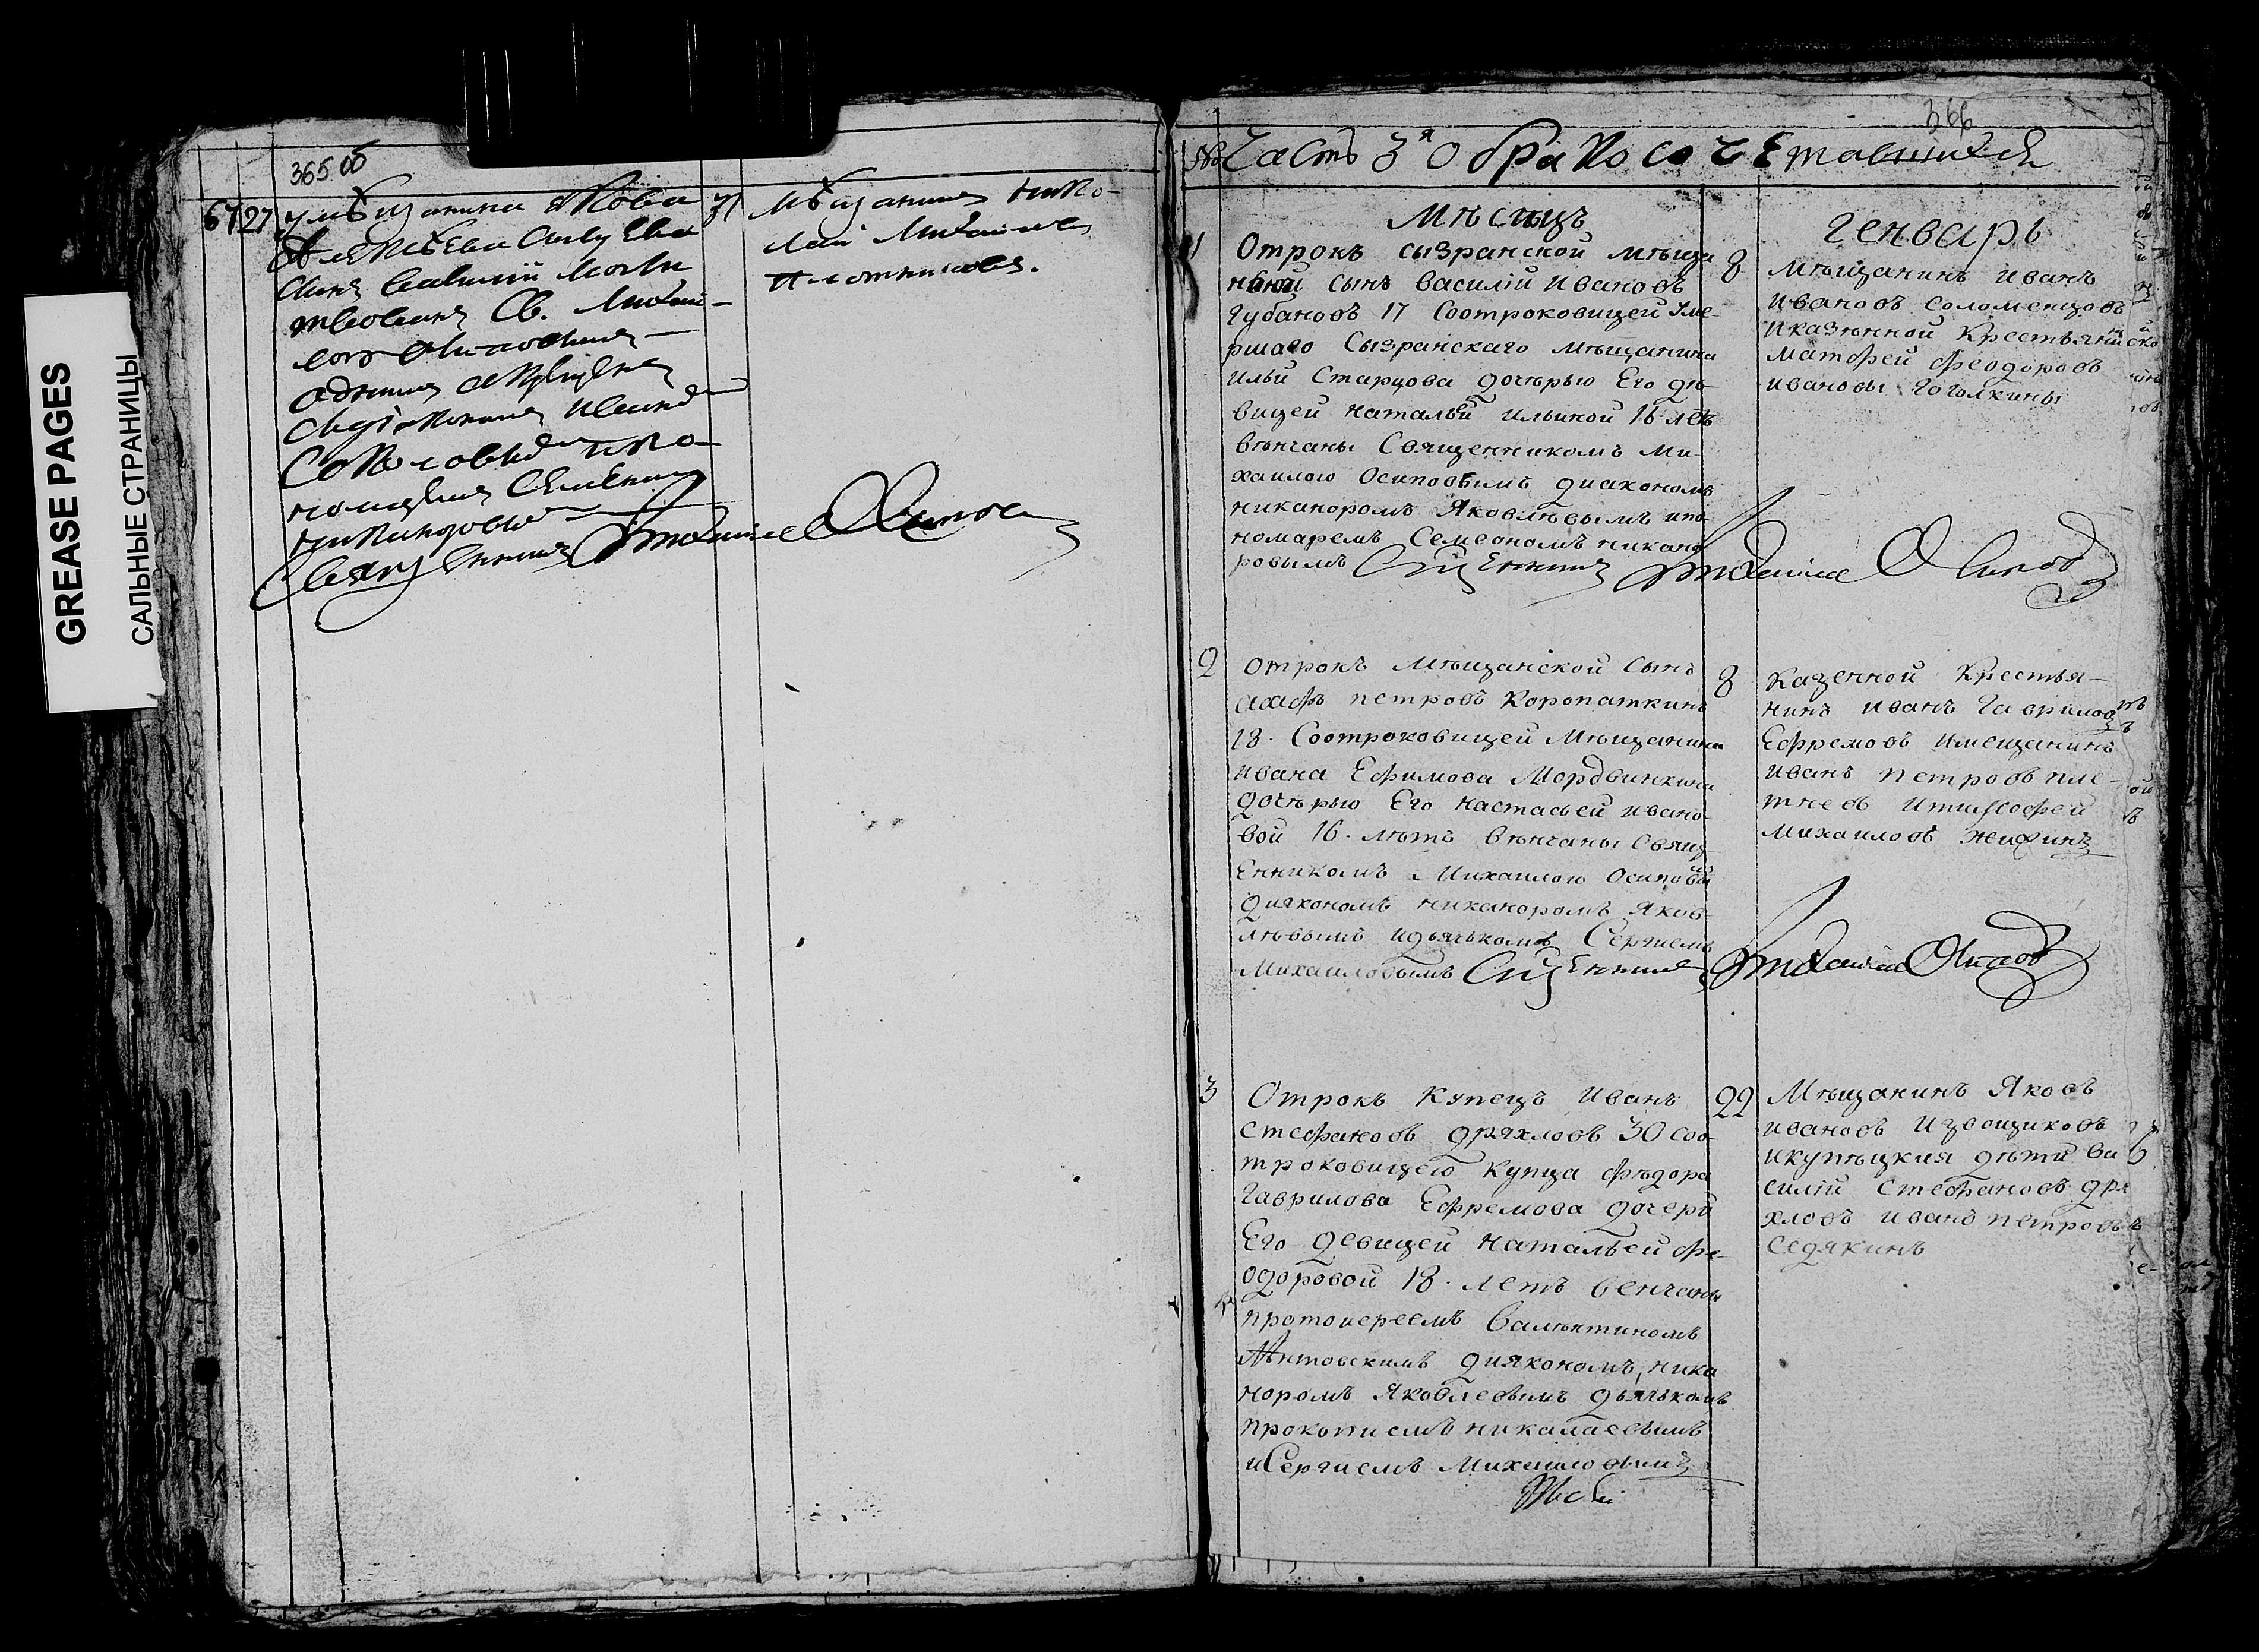 GREASE PAGES
САЛЬНЫЕ СТРАНИЦЫ
365 об
67 27 у мѣщанина Якова 31
сынъ
Св. Михаи-
ломъ Осиповымъ
Семеномъ
Никаноровымъ
Священникъ Михаилъ Осиповъ
мѣщанинъ Нико-
лай Михаиловъ
Плотниковъ.
366
№ Часть 3я о бракосочетавшихся
Мѣсяцъ
Генварь
1 Отрокъ сызранской мѣща
нской сынъ Василій Ивановъ
Губановъ 17 соотроковицей уме-
ршаго Сызранскаго мѣщанина
Ильи Старцова дочѣрью Его дѣ-
вицей Натальей Ильиной 16 лѣтъ
вѣнчаны Священникомъ Ми-
хаилою Осиповымъ диакономъ
Никаноромъ Яковлѣвымъ ипо-
номаремъ Семеономъ Никано
ровымъ Сщенникъ Михаилъ Осиповъ
8 Мѣщанинъ Иванъ
Ивановъ Соломенцовъ
Иказѣнной Крестьянинъ
Матфей Феодоровъ
Ивановы Гоголкины
2 Отрокъ Мѣщанской Сынъ
петровъ Коропаткинъ
18. Соотроковицей Мѣщанина
Ивана Ефимова Мордвинкина
дочѣрью Его Настасьей Ивано-
вой 16. лѣтъ Вѣнчаны Свящ-
Енникомъ Михаилою Осиповы
диякономъ Никаноромъ Яков-
лѣвымъ идьячькомъ Сергиемъ
Михаиловымъ Сщенникъ Михаилъ Осиповъ
8 Казенной Крестья-
нинъ Иванъ Гавриловъ
Ефремовъ Имещанинъ
Иванъ Петровъ пле-
тневъ Итимофей
Михаиловъ
3 Отрокъ Купецъ Иванъ
Стефановъ Дряхловъ 30 соо-
троковицею Купца Фѣдора
Гаврилова Ефремова дочери
Его девицей Натальей Фе-
одоровой 18. летъ венчаны
протоиереемъ Валѣнтиномъ
дияконом, Ника
норомъ Яковлевымъ дьячькомъ
прокопиемъ Николаевымъ
иСергиемъ Михаиловымъ
22 Мѣщанинъ Яковъ
Ивановъ Извощиковъ
икупѣцкия дѣти Ва
силій Стефановъ Дря
хловъ Иванъ Петровъ
Седякинъ